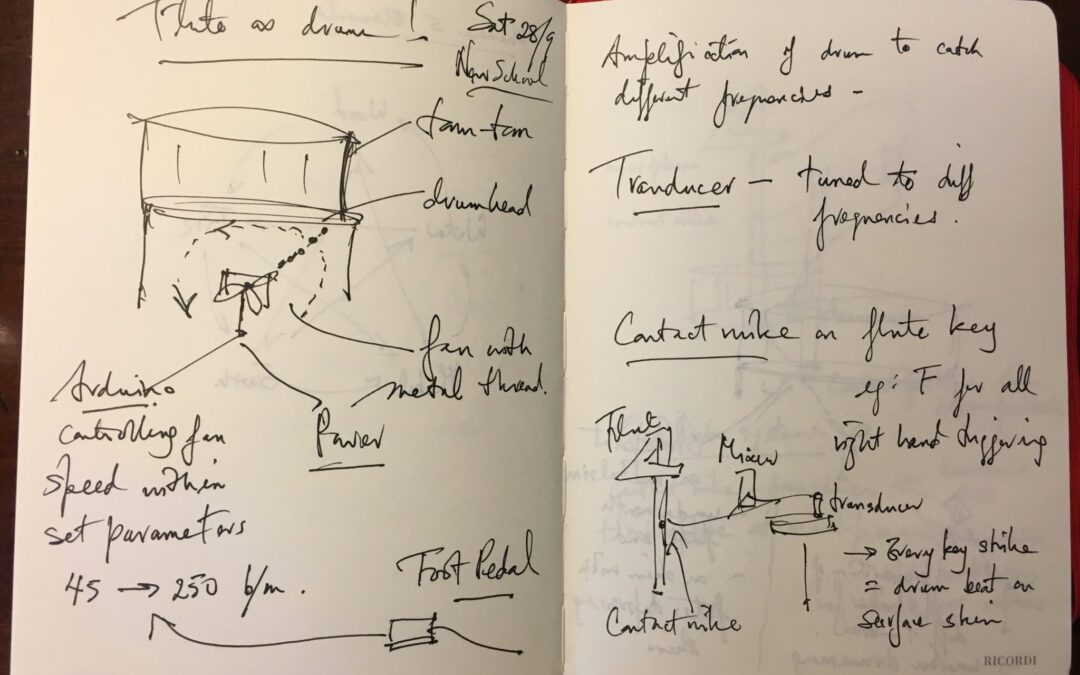 Flute as drum!
Sat 28/9
New School
tam-tam
drumhead
fan with
metal thread.
Arduino
controlling fan
speed within
set parameters
45 → 250 b/m.
Power
Foot Pedal
Amplification of drum to catch
different frequencies -
Tranducer - tuned to diff
frequencies.
Contact mike on flute key
eg: F for all
right hand triggering
Flute
Mixer
transducer
Contact mike
→ Every key strike
= drum beat on
surface skin
RICORDI